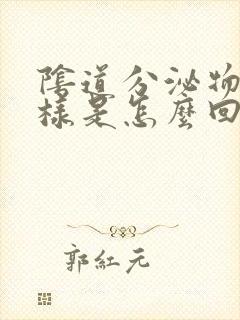 陰道分泌物
樣是怎麼回
郭紅元